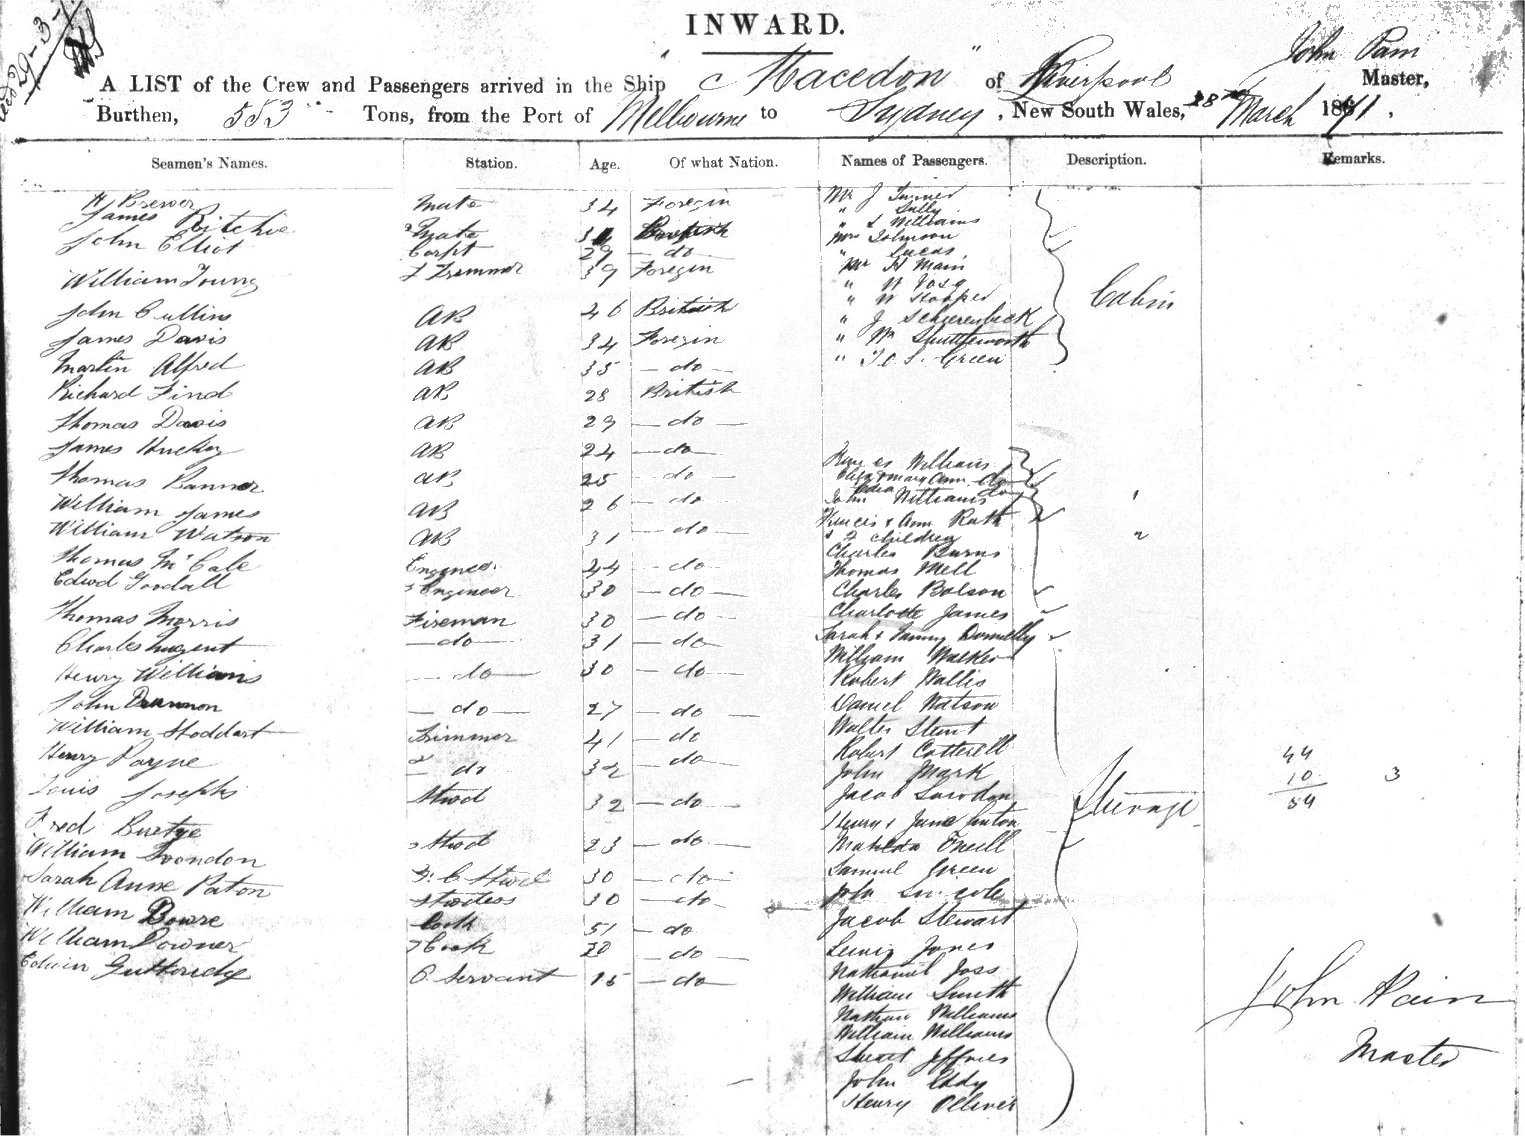 INWARD.
John Pain
A LIST of the Crew and Passengers arrived in the Ship "Macedon" of Liverpool Master,
Burthen, 553 Tons, from the Port of Melbourne to Sydney, New South Wales, 28th March 1871.
Seamen's Names. Station. Age. Of what Nation. Names of Passengers. Description. Remarks.
H Brewer Mate 34 Foregin Mr J Turner
James Ritchie 2 Mate British " Sully
" S Williams
John Elliot Carpt 29 do Mrs Johnson
" Lucas
William Young L Trimmer 39 Foregin Mr H Main
" W
" W
John Cullins AB 46 British " J Schierenbeck
Cabin
James Davis AB 34 Foregin " Wm Shuttleworth
Martin Alfred AB 35 do " T. C. S. Green
Richard Find AB 28 British
Thomas Davis AB 29 do
James AB 24 do
Williams
Thomas Banner AB 25 do Eliza & Mary Ann do
William James AB 26 do John Williams
Francis & Ann Rath
William Watson AB 31 do & 2 children
Charles Burns
Thomas McCale Engineer 24 do Thomas Mell
Edwd Goodall 2 Engineer 30 do Charles Bolson
Thomas Morris Fireman 30 do Charlotte James
Charles Nugent do 31 do Sarah & Fanny Donnelly
William Walker
Henry Williams do 30 do Robert Wallis
John Drannon do 27 do Daniel Watson
William Stoddart Trimmer 41 do Walter Stent
Robert Cotterell
Henry Payne do 32 do John Mark
Louis Josephs Stwd 32 do Jacob Snowdon
Henry & Jane
Steerage
44
10
54
3
Fred 2 Stwd 23 do Matilda Oneill
William Loondon F. C Stwd 30 do Samuel Green
Sarah Anne Paton Stwdess 30 do John
William Bowre Cook 51 do Jacob Stewart
William Downer 2 Cook 20 do Lewis Jones
Edwin Gutteridge C. Servant 15 do Nathaniel Joss
William Smith
Nathan Williams
William Williams
Stuart Jeffries
John Eddy
Henry Olliver
John Pain
Master